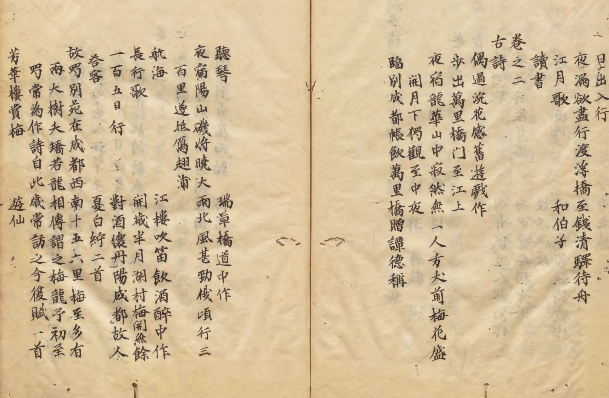 日出入行
夜漏欲盡行渡浮橋至錢清驛待舟
江月歌　和伯子
讀書
卷之二
古詩
偶過浣花感舊遊戲作
步出萬里橋門至江上
夜宿龍華山中寂然無一人方丈前梅花盛
開月下獨觀至中夜
臨別成都帳飲萬里橋贈譚德稱
聽琴　瑞草橋道中作
夜宿陽山磯將曉大雨北風甚勁俄頃行三
百里遂抵鴈翅浦
航海　江樓吹笛飲酒醉中作
長行歌　開歲半月湖村梅開無餘
一百五日行　對酒懷丹陽成都故人
荅客　夏白紵二首
故蜀別苑在成都西南十五六里梅至多有
兩大樹夭矯若龍相傳謂之梅龍予初至
蜀嘗為作詩自此歲常訪之今復賦一首
芳華樓賞梅　遊仙